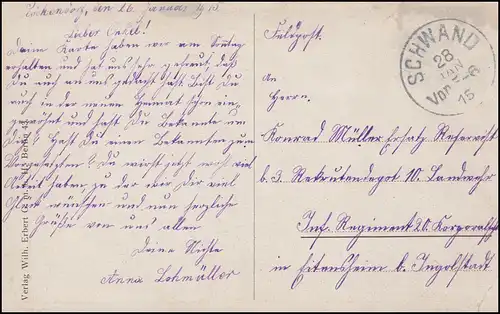 den 26. Januar 1915
Lieber Onkel!
Deine Karte haben wir am Sonntag
erhalten und hat uns sehr gefreut, daß
Du auch an uns gedacht hast. Bist Du
auch in der neuen Heimat schon ein-
gewöhnt und hast Du Bekannte um
Dich? Hast Du einen Bekannten zum
Vorgesetzten? Du wirst jetzt wohl viel
Arbeit haben, zu der wir Dir viel
Glück wünschen und nun herzliche
Grüße von uns allen
Deine Nichte
Anna Lohmüller
Verlag Wilh. Erbert
Feldpost.
SCHWAND
28
JAN
Vor 5-6
15
An
Herrn
Konrad Müller Ersatz Reservist
b. 3. Rekrutendepot 10. Landwehr
Inf. Regiment 20. Korporalschaft
in Eitensheim b. Ingolstadt